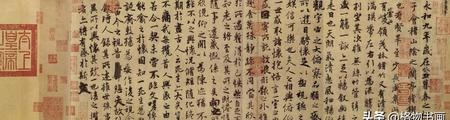 永和九年歲在癸丑暮春之初會
于會稽山陰之蘭亭脩稧事
也羣賢畢至少長咸集此地
有崇山峻領茂林脩竹又有清流激
湍暎帶左右引以為流觴曲水
列坐其次雖無絲竹管弦之
盛一觴一詠亦足以暢叙幽情
是日也天朗氣清惠風和暢仰
觀宇宙之大俯察品類之盛
所以遊目騁懷足以極視聽之
娛信可樂也夫人之相與俯仰
一世或取諸懷抱悟言一室之內
或因寄所託放浪形骸之外雖
趣舍萬殊靜躁不同當其欣
於所遇蹔得於己怏然自足不
知老之將至及其所之既惓情
隨事遷感慨係之矣向之所
欣俛仰之間以為陳迹猶不
能不以之興懷況脩短隨化終
期於盡古人云死生亦大矣豈
不痛哉每攬昔人興感之由
若合一契未嘗不臨文嗟悼不
能喻之於懷固知一死生為虛
誕齊彭殤為妄作後之視今
亦由今之視昔悲夫故列
叙時人錄其所述雖世殊事
異所以興懷其致一也後之攬
者亦將有感於斯文
头条 @格物书画